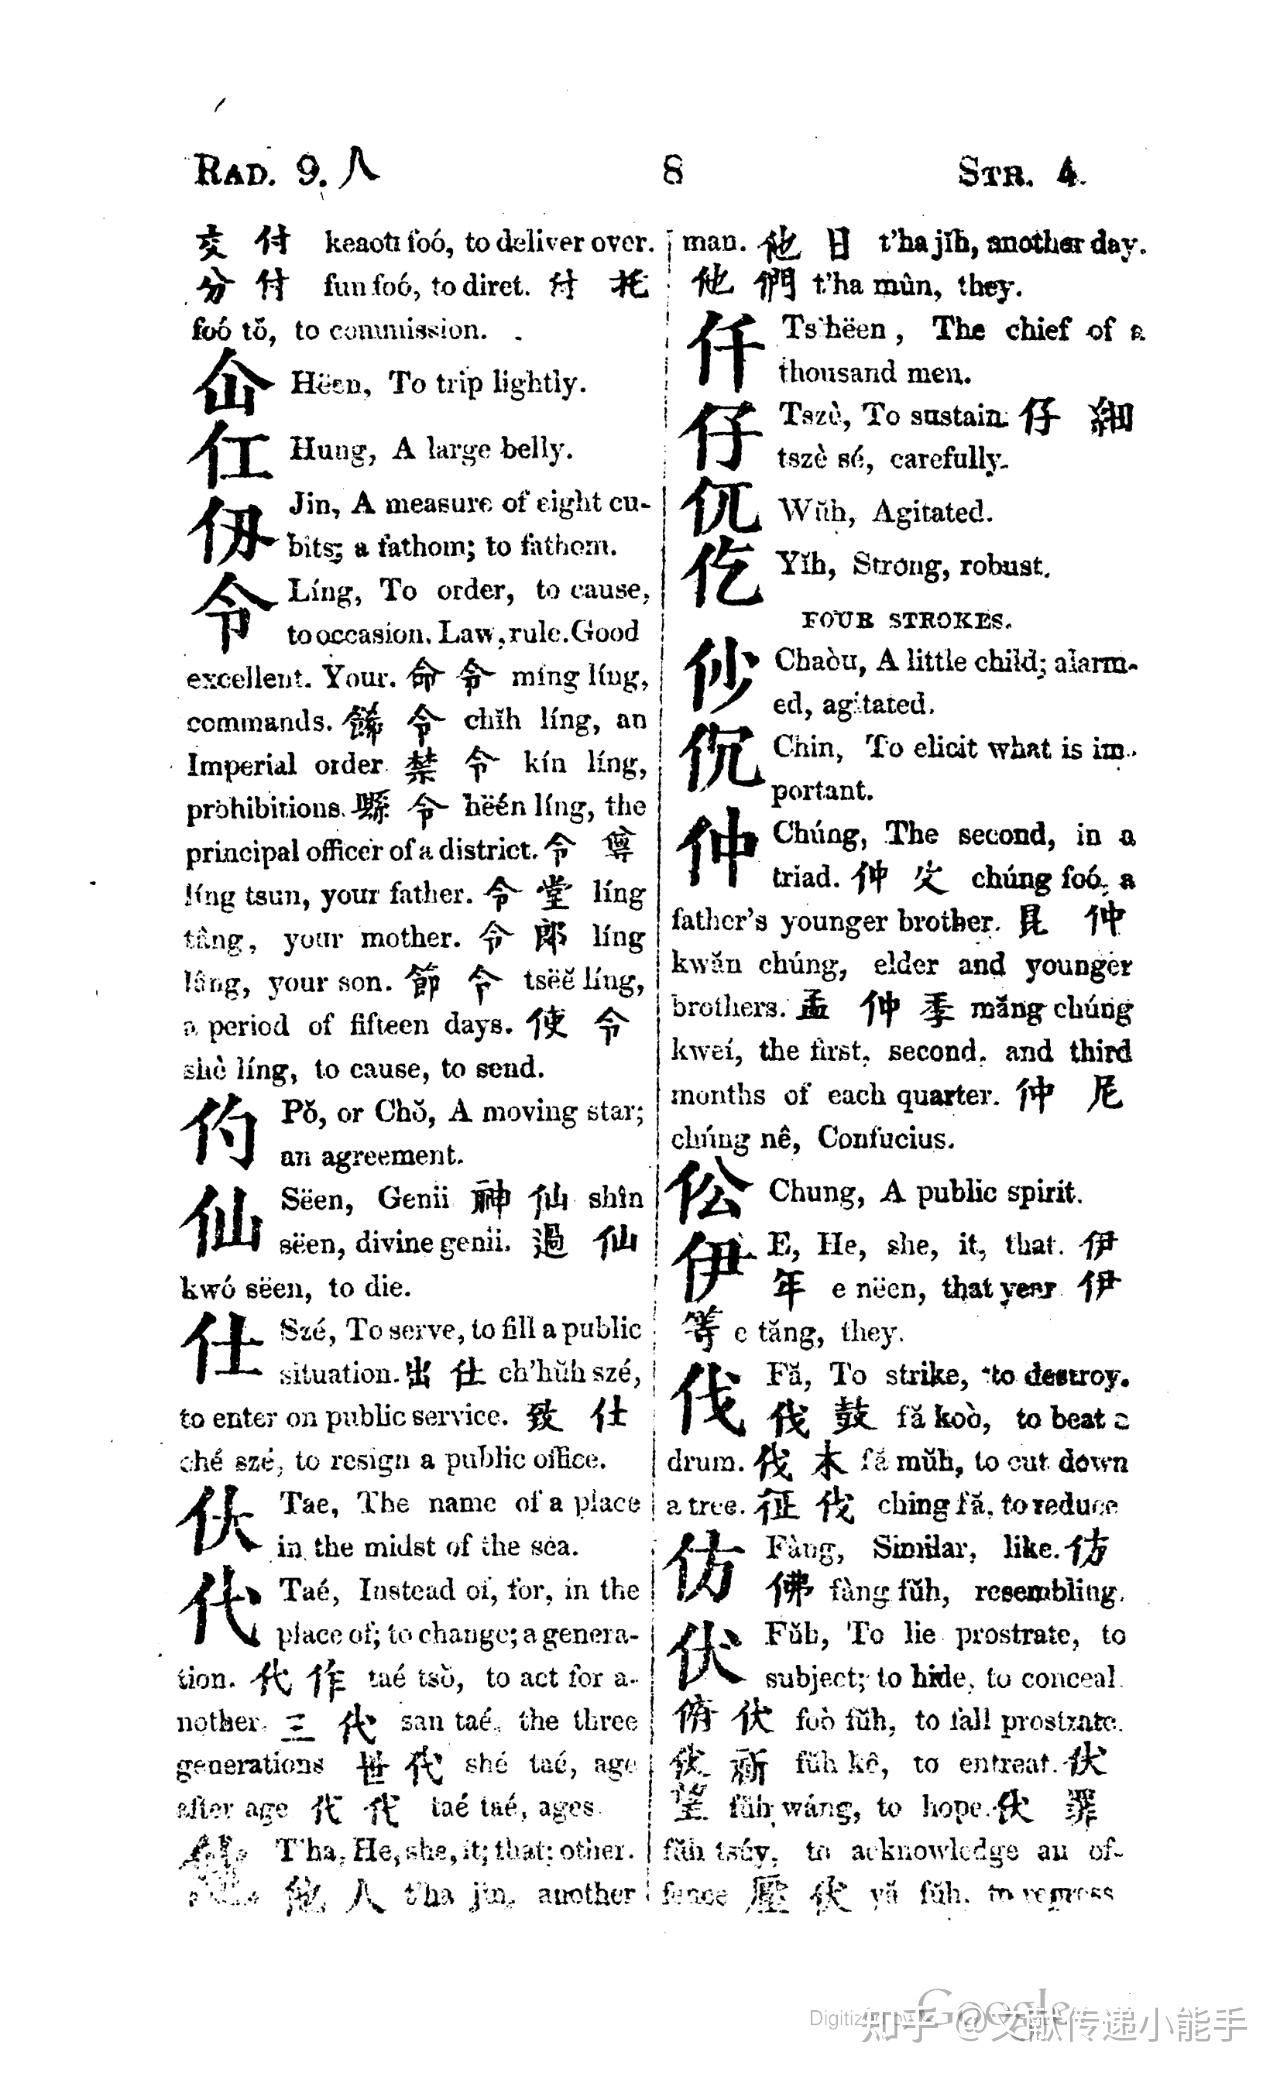 RAD. 9. 人 8 STR. 4.
交 付 keaou foó, to deliver over.
分 付 fun foó, to diret. 付 托
foó tŏ, to commission.
仚 Hëen, To trip lightly.
仜 Hung, A large belly.
仞 Jin, A measure of eight cu-
bits; a fathom; to fathom.
令 Líng, To order, to cause,
to occasion. Law, rule. Good
excellent. Your. 命 令 míng líng,
commands. 飭 令 chĭh líng, an
Imperial order 禁 令 kín líng,
prohibitions. 縣 令 hëén líng, the
principal officer of a district. 令 尊
líng tsun, your father. 令 堂 líng
tâng, your mother. 令 郎 líng
lâng, your son. 節 令 tsëĕ líng,
a period of fifteen days. 使 令
shè líng, to cause, to send.
仢 Pŏ, or Chŏ, A moving star;
an agreement.
仙 Sëen, Genii 神 仙 shîn
sëen, divine genii. 過 仙
kwó sëen, to die.
仕 Szé, To serve, to fill a public
situation. 出 仕 ch'hŭh szé,
to enter on public service. 致 仕
ché szé, to resign a public office.
㐲 Tae, The name of a place
in the midst of the sea.
代 Taé, Instead of, for, in the
place of; to change; a genera-
tion. 代 作 taé tsŏ, to act for a-
nother. 三 代 san taé, the three
generations 世 代 shé taé, age
after age 代 代 taé taé, ages.
他 T'ha, He, she, it; that; other.
他 人 t'ha jin, another
man. 他 日 t'ha jĭh, another day.
他 們 t'ha mûn, they.
仟 Ts'hëen, The chief of a
thousand men.
仔 Tszè, To sustain. 仔 細
tszè sé, carefully.
仉 Wŭh, Agitated.
仡 Yĭh, Strong, robust.
FOUR STROKES.
仯 Chaòu, A little child; alarm-
ed, agitated.
Chin, To elicit what is im-
portant.
仲 Chúng, The second, in a
triad. 仲 父 chúng foó, a
father's younger brother. 昆 仲
kwăn chúng, elder and younger
brothers. 孟 仲 季 măng chúng
kweí, the first, second, and third
months of each quarter. 仲 尼
chúng nê, Confucius.
伀 Chung, A public spirit.
伊 E, He, she, it, that. 伊
年 e nëen, that year 伊
等 e tăng, they.
伐 Fă, To strike, to destroy.
伐 鼓 fă koò, to beat a
drum. 伐 木 fă mŭh, to cut down
a tree. 征 伐 ching fă, to reduce
仿 Fàng, Similar, like. 仿
佛 fàng fŭh, resembling.
伏 Fŭh, To lie prostrate, to
subject; to hide, to conceal
俯 伏 foò fŭh, to fall prostrate.
伏 祈 fŭh kê, to entreat. 伏
望 fŭh wáng, to hope. 伏 罪
fŭh tsúy, to acknowledge an of-
fence 壓 伏 yă fŭh, to repress
Digitized by Google
知乎 @文献传递小能手